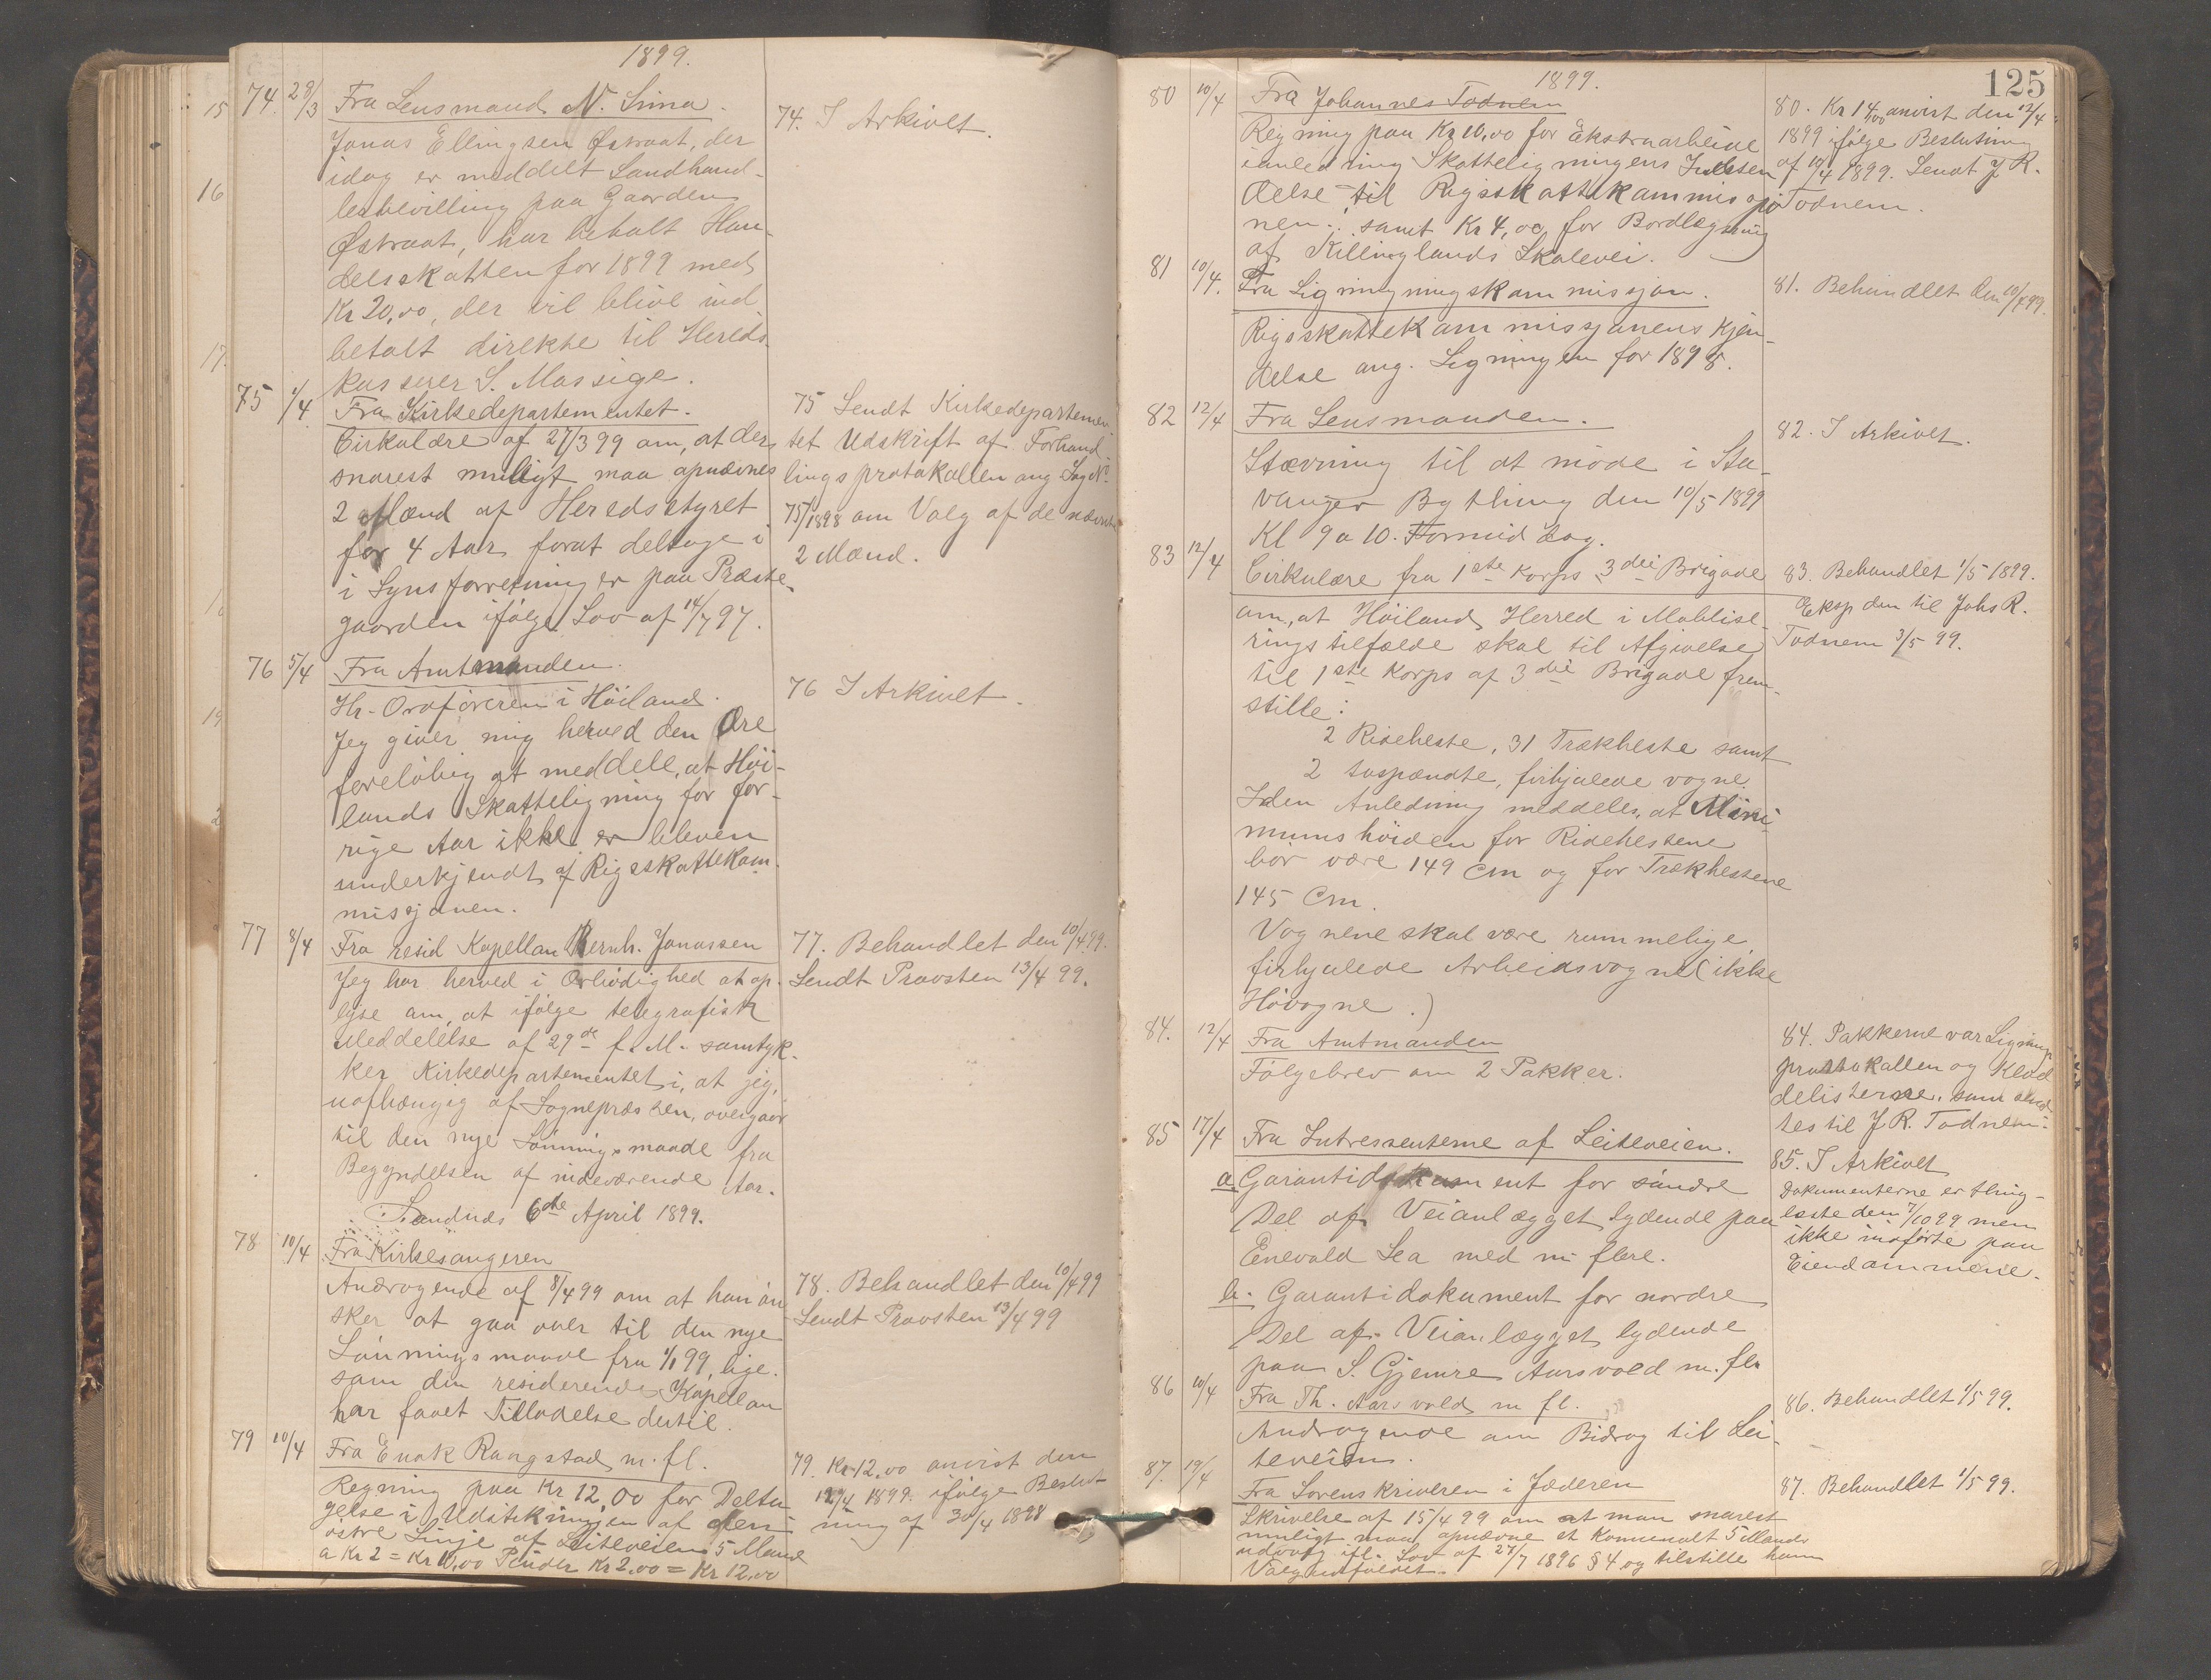 1899.
74. 28/3 Fra Lensmand N. Sima.
Jonas Ellingsen Østraat, der
idag er meddelt Landhand-
lerbevilling paa Gaarden
Østraat, har betalt Han-
delsskatten for 1899 med
Kr 20,00, der vil blive ind
betalt direkte til Hereds-
kasserer S. Massige.
74. I Arkivet.
75 1/4 Fra Kirkedepartementet.
Cirkulære af 27/3 99 om, at der
snarest muligt maa opnævnes
2 Mænd af Heredsstyret
for 4 Aar forat deltage i
i Synsforretninger paa Præste-
gaarden ifølge Lov af 14/7 97.
75 Sendt Kirkedepartemen-
tet Udskrift af Forhand-
lingsprotokollen ang Sag No.
75/1898 om Valg af de nævnte
2 Mænd.
76 5/4 Fra Amtmanden.
Hr. Ordføreren i Höiland.
Jeg giver mig herved den Ære
foreløbig at meddele, at Höi-
lands Skatteligning for for-
rige Aar ikke er bleven
underkjendt af Rigsskattekom-
missjonen.
76 I Arkivet.
77 8/4 Fra resid Kapellan Bernh. Jonassen
Jeg har herved i Ærbödighed at op-
lyse om, at ifölge telegrafisk
Meddelelse af 29de f. M. samtyk-
ker Kirkedepartementet i, at jeg,
uafhængig af Sognepræsten, overgaar
til den nye Lönningsmaade fra
Begyndelsen af indeværende Aar.
Sandnes 6te April 1899.
77. Behandlet den 10/4 99.
Sendt Provsten 13/4 99.
78 10/4 Fra Kirkesangeren
Andragende af 8/4 99 om at han ön
sker at gaa over til den nye
Lönningsmaade fra 1/1 99, lige-
som den residerende Kapellan
har faaet Tilladelse dertil.
78. Behandlet den 10/4 99
Sendt Provsten 13/4 99
79 10/4 Fra Enok Rangstad m. fl.
Regning paa Kr 12,00 for Delta
gelse i Udstikningen af den
östre Linje af Leiteveien 5 Mand
a Kr 2 = Kr 10,00 Pinder Kr 2.00 = Kr 12,00
79. Kr 12,00 anvist den
12/4 1899. ifölge Beslut
ning af 30/4 1898
125
1899.
80 10/4 Fra Johannes Todnem
Regning paa Kr 10,00 for Ekstraarbeide
ianledning Skatteligningens Indsten
delse til Rigsskattekommissjo
nen. samt Kr 4,00 for Bordlægning
af Killinglands Skolevei.
80. Kr 14,00 anvist den 12/4
1899 ifölge Beslutning
af 10/4 1899. Sendt J. R.
Todnem.
81 10/4. Fra Ligningningskommissjon.
Rigsskattekommissjonens Kjen-
delse ang. Ligningen for 1898.
81. Behandlet den 10/4 99.
82 12/4 Fra Lensmanden.
Stævning til at möde i Sta-
vanger Bything den 10/5 1899
Kl 9 a 10. Formiddag.
82. I Arkivet.
83 12/4 Cirkulære fra 1ste Korps 3die Brigade
om, at Höiland Herred i Mobilise-
ringstilfælde skal til Afgivelse
til 1ste Korps af 3die Brigade frem-
stille:
2 Rideheste, 31 Trækheste samt
2 tospændte, firhjulede vogne.
I den Anledning meddeles, at Mini-
mumshöiden for Ridehestene
bör være 149 Cm og for Trækhestene
145 Cm.
Vognene skal være rummelige,
firhjulede Arbeidsvogne (ikke
Hövogne.)
83. Behandlet 1/5 1899.
Eksp den til Johs R.
Todnem 3/5 99.
84. 12/4 Fra Amtmanden
Fölgebrev om 2 Pakker.
84. Pakkerne var Lignings
protokollen og Klad
delisterne, som send
tes til J R. Todnem.
85 17/4 Fra Intressenterne af Leiteveien.
a Garantidokument for söndre
Del af Veianlægget lydende paa
Enevald Lea med m flere.
b. Garantidokument for nordre
Del af Veianlægget lydende
paa S. Gjemre Aarsvold m. fl.
85. I Arkivet
Dokumenterne er thing-
læste den 7/10 99 men
ikke indförte paa
Eiendommene.
86 10/4 Fra Th. Aarsvold m fl.
Andragende om Bidrag til Lei-
teveien.
86. Behandlet 1/5 99.
87. 19/4 Fra Sorenskriveren i Jæderen
Skrivelse af 15/4 99 om at man snarest
muligt maa opnævne et Kommunalt 5 Mands
udvalg ifl. Lov af 27/7 1896 § 4 og tilstille ham
Valgudfaldet.
87. Behandlet 1/5 99.